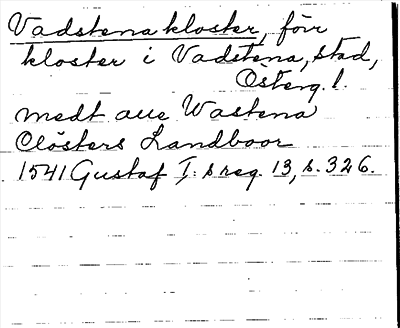 Vadstena kloster, förr
kloster i Vadstena, stad,
Österg. l.
medt alle Wastena
Clösters Landboor
1541 Gustaf I:s reg. 13, s. 326.